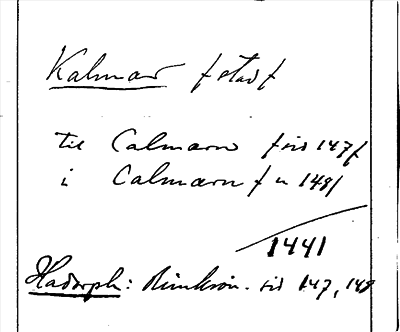 Kalmar f stad f
til Calmarn f sid 147 f
i Calmarn f " 148 f
1441
Hadorph: Rimkrön. sid 147, 148